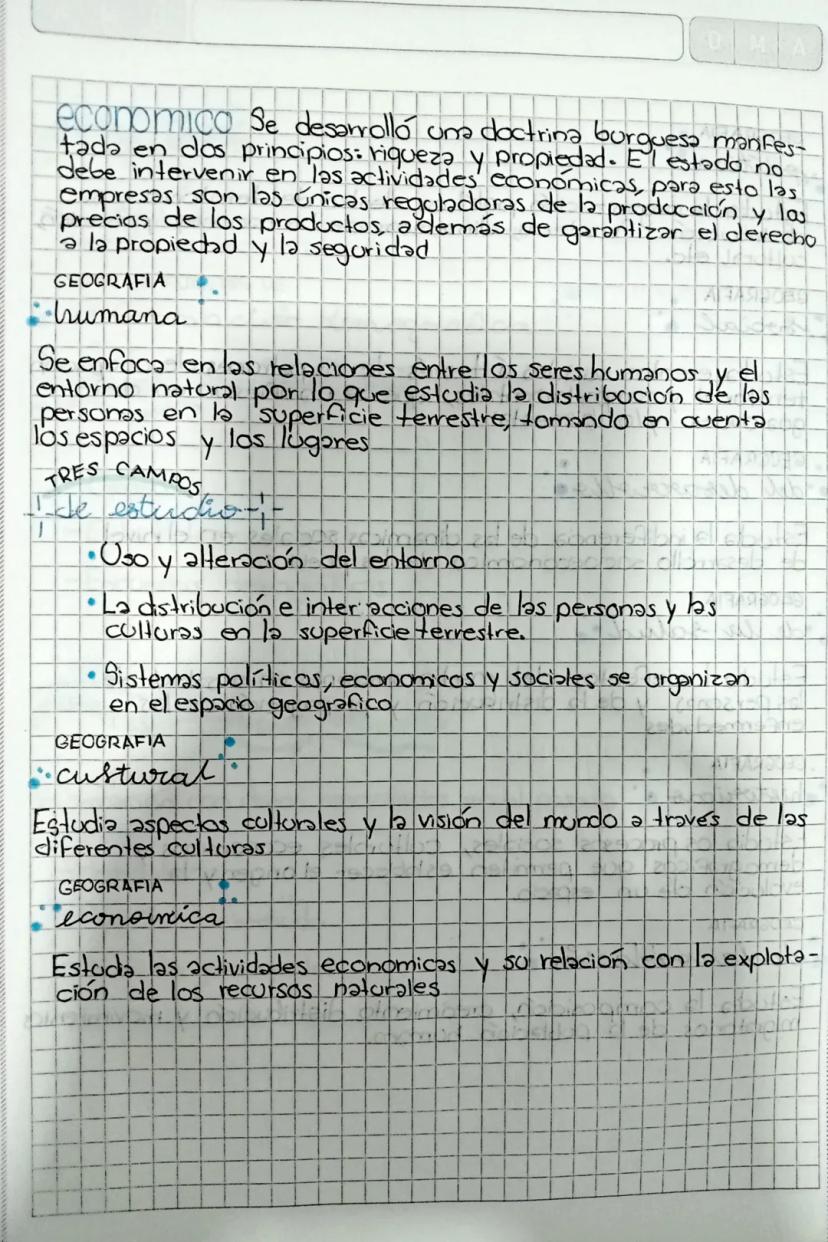 D M A
economico Se desarrolló una doctrina burguesa manifes-
tada en dos principios: riqueza y propiedad. El estado no
debe intervenir en las actividades económicas, para esto las
empresas son las únicas reguladoras de la producción y los
precios de los productos, además de garantizar el derecho
a la propiedad y la seguridad
GEOGRAFIA
humana
Se enfoca en las relaciones entre los seres humanos y el
entorno natural por lo que estudia la distribución de las
personas en la superficie terrestre, tomando en cuenta
los espacios y los lugares
TRES CAMPOS
de estudio
• Uso y alteración del entorno
• La distribución e interacciones de las personas y las
culturas en la superficie terrestre.
• Sistemas políticos, economicos y sociales se organizan
en el espacio geografico
GEOGRAFIA
custural
Estudia aspectos culturales y la visión del mundo a través de las
diferentes culturas
GEOGRAFIA
economica
Estuda las actividades economicas y su relación con la explota-
ción de los recursos naturales